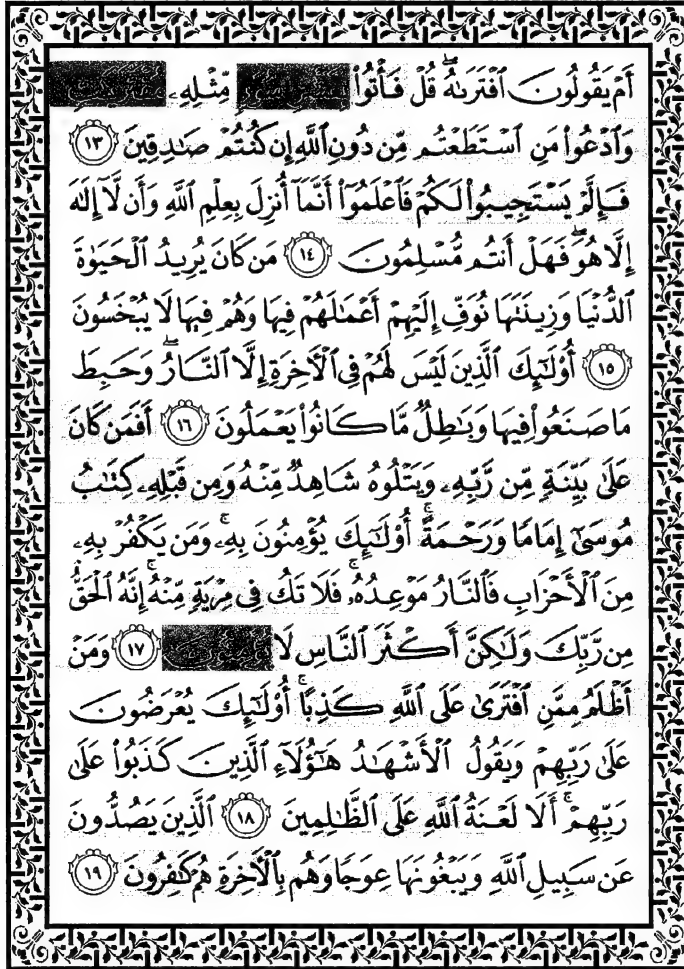 أَمْ يَقُولُونَ ٱفْتَرَىٰهُ ۖ قُلْ فَأْتُوا۟ مِّثْلِهِۦ
وَٱدْعُوا۟ مَنِ ٱسْتَطَعْتُم مِّن دُونِ ٱللَّهِ إِن كُنتُمْ صَٰدِقِينَ ١٣
فَإِلَّمْ يَسْتَجِيبُوا۟ لَكُمْ فَٱعْلَمُوٓا۟ أَنَّمَآ أُنزِلَ بِعِلْمِ ٱللَّهِ وَأَن لَّآ إِلَٰهَ
إِلَّا هُوَ ۖ فَهَلْ أَنتُم مُّسْلِمُونَ ١٤ مَن كَانَ يُرِيدُ ٱلْحَيَوٰةَ
ٱلدُّنْيَا وَزِينَتَهَا نُوَفِّ إِلَيْهِمْ أَعْمَٰلَهُمْ فِيهَا وَهُمْ فِيهَا لَا يُبْخَسُونَ
١٥ أُو۟لَٰٓئِكَ ٱلَّذِينَ لَيْسَ لَهُمْ فِى ٱلْءَاخِرَةِ إِلَّا ٱلنَّارُ ۖ وَحَبِطَ
مَا صَنَعُوا۟ فِيهَا وَبَٰطِلٌ مَّا كَانُوا۟ يَعْمَلُونَ ١٦ أَفَمَن كَانَ
عَلَىٰ بَيِّنَةٍ مِّن رَّبِّهِۦ وَيَتْلُوهُ شَاهِدٌ مِّنْهُ وَمِن قَبْلِهِۦ كِتَٰبُ
مُوسَىٰٓ إِمَامًا وَرَحْمَةً ۚ أُو۟لَٰٓئِكَ يُؤْمِنُونَ بِهِۦ ۚ وَمَن يَكْفُرْ بِهِۦ
مِنَ ٱلْأَحْزَابِ فَٱلنَّارُ مَوْعِدُهُۥ ۚ فَلَا تَكُ فِى مِرْيَةٍ مِّنْهُ ۚ إِنَّهُ ٱلْحَقُّ
مِن رَّبِّكَ وَلَٰكِنَّ أَكْثَرَ ٱلنَّاسِ لَا ١٧ وَمَنْ
أَظْلَمُ مِمَّنِ ٱفْتَرَىٰ عَلَى ٱللَّهِ كَذِبًا ۚ أُو۟لَٰٓئِكَ يُعْرَضُونَ
عَلَىٰ رَبِّهِمْ وَيَقُولُ ٱلْأَشْهَٰدُ هَٰٓؤُلَآءِ ٱلَّذِينَ كَذَبُوا۟ عَلَىٰ
رَبِّهِمْ ۚ أَلَا لَعْنَةُ ٱللَّهِ عَلَى ٱلظَّٰلِمِينَ ١٨ ٱلَّذِينَ يَصُدُّونَ
عَن سَبِيلِ ٱللَّهِ وَيَبْغُونَهَا عِوَجًا وَهُم بِٱلْءَاخِرَةِ هُمْ كَٰفِرُونَ ١٩